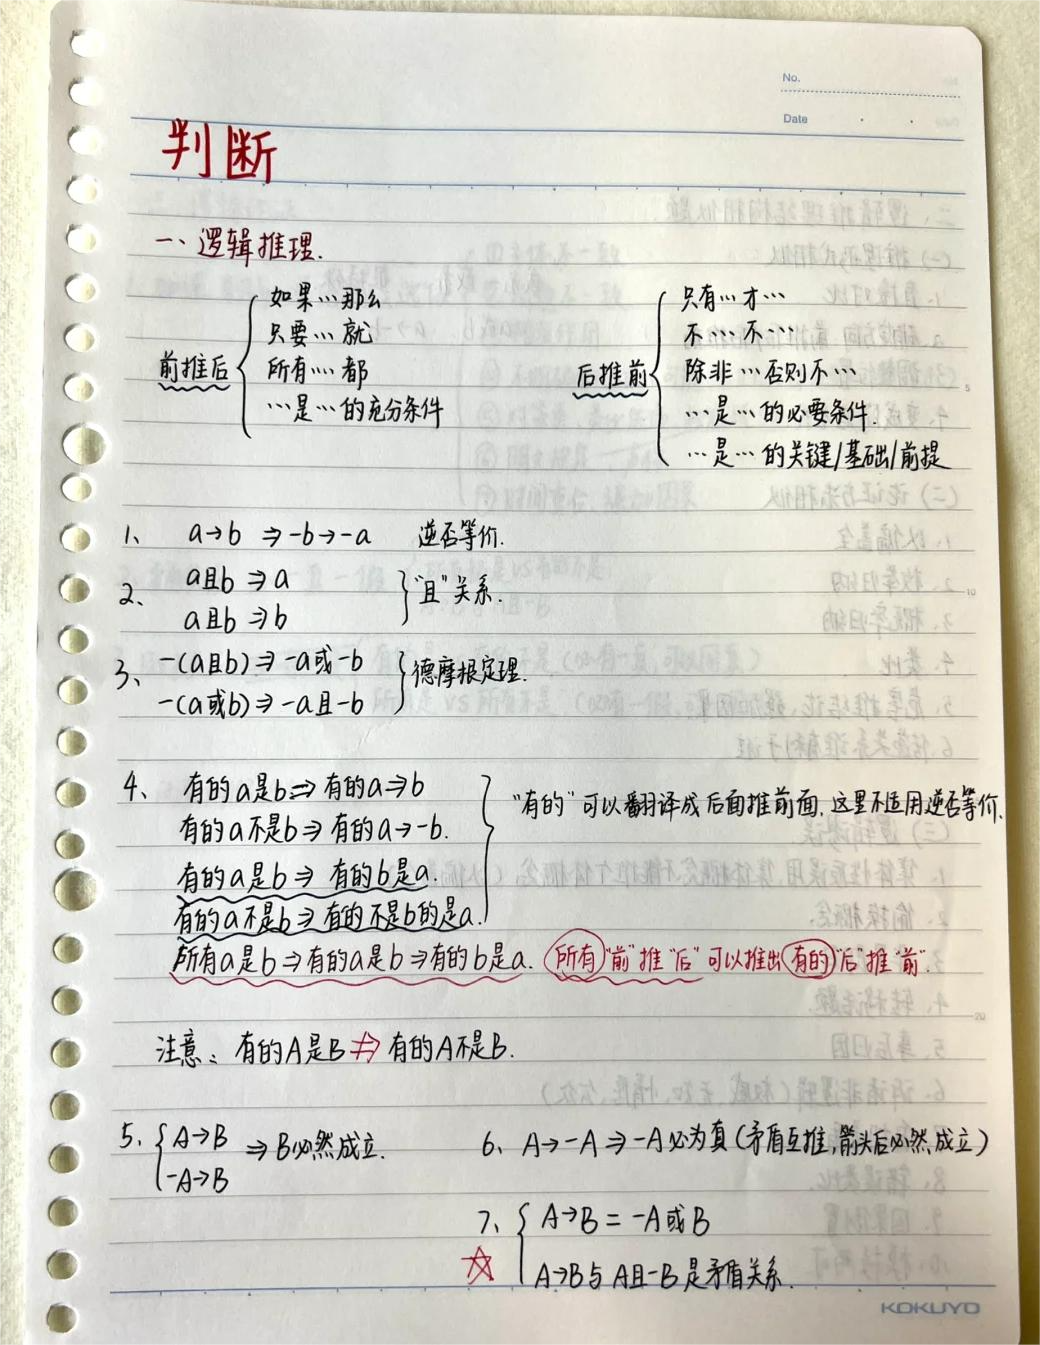 No.
Date
判断
一、逻辑推理.
前推后
如果…那么
只要…就
所有…都
…是…的充分条件
后推前
只有…才…
不…不…
除非…否则不…
…是…的必要条件.
…是…的关键/基础/前提
1、 a→b ⇒ -b→-a 逆否等价.
2、 a且b ⇒ a
a且b ⇒ b
"且"关系.
3、 -(a且b) ⇒ -a或-b
-(a或b) ⇒ -a且-b
德摩根定理.
4、 有的a是b ⇒ 有的a⇒b
有的a不是b ⇒ 有的a→-b.
有的a是b ⇒ 有的b是a.
有的a不是b ⇒ 有的不是b的是a.
"有的"可以翻译成后面推前面,这里不适用逆否等价.
所有a是b ⇒ 有的a是b ⇒ 有的b是a. 所有"前"推"后"可以推出有的"后"推"前".
注意: 有的A是B ⇏ 有的A不是B.
5、 A→B
-A→B
⇒ B必然成立.
6、 A→-A ⇒ -A必为真(矛盾互推,箭头后必然成立)
7、 A→B = -A或B
☆ A→B与A且-B是矛盾关系.
KOKUYO